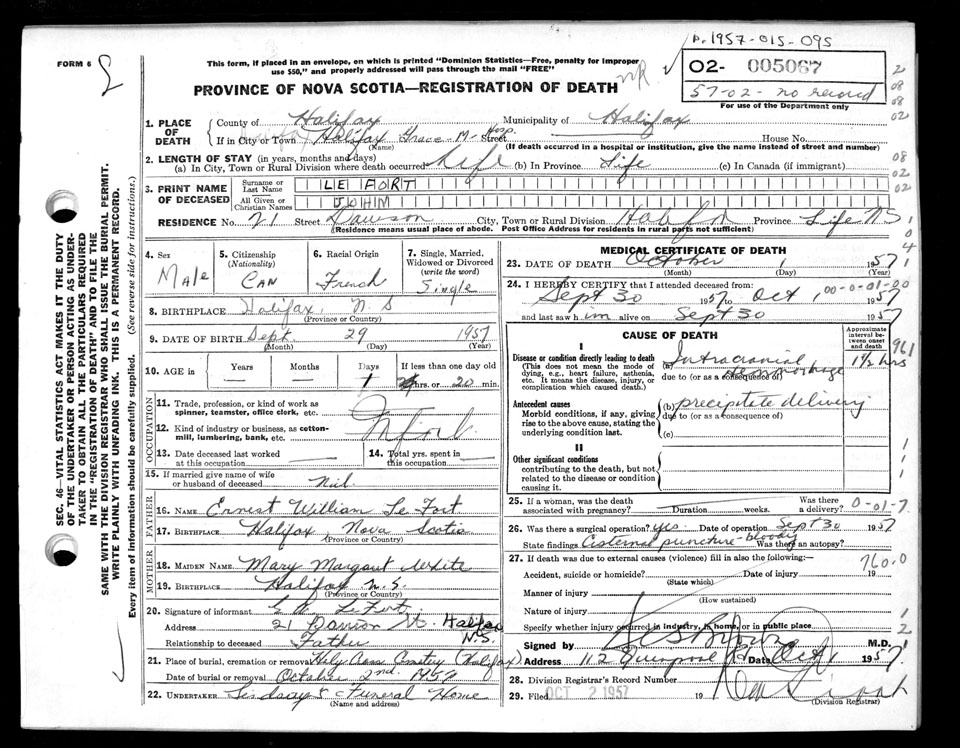 p. 1957-015-095
FORM 6
This form, if placed in an envelope, on which is printed "Dominion Statistics—Free, penalty for improper
use $50," and properly addressed will pass through the mail "FREE"
NR
02- 005067
57-02- no record
For use of the Department only
PROVINCE OF NOVA SCOTIA—REGISTRATION OF DEATH
1. PLACE OF DEATH
County of Halifax Municipality of Halifax
If in City or Town Halifax Grace M. Hosp. Street House No.
(Name) (If death occurred in a hospital or institution, give the name instead of street and number)
2. LENGTH OF STAY (in years, months and days)
(a) In City, Town or Rural Division where death occurred Life (b) In Province Life (c) In Canada (if immigrant)
3. PRINT NAME OF DECEASED
Surname or Last Name LE FORT
All Given or Christian Names JOHN
RESIDENCE No. 21 Street Dawson City, Town or Rural Division Halifax Province Life N.S.
(Residence means usual place of abode. Post Office Address for residents in rural parts not sufficient)
4. Sex Male
5. Citizenship (Nationality) CAN
6. Racial Origin French
7. Single, Married, Widowed or Divorced (write the word) Single
8. BIRTHPLACE Halifax, N S
(Province or Country)
9. DATE OF BIRTH Sept. 29 1957
(Month) (Day) (Year)
10. AGE in Years Months Days 1 If less than one day old hrs. or 20 min.
OCCUPATION
11. Trade, profession, or kind of work as
spinner, teamster, office clerk, etc.
12. Kind of industry or business, as cotton-
mill, lumbering, bank, etc.
13. Date deceased last worked
at this occupation
14. Total yrs. spent in
this occupation
15. If married give name of wife
or husband of deceased Nil.
FATHER
16. NAME Ernest William Le Fort
17. BIRTHPLACE Halifax Nova Scotia
(Province or Country)
MOTHER
18. MAIDEN NAME Mary Margaret White
19. BIRTHPLACE Halifax N.S.
(Province or Country)
20. Signature of informant E W LeFort
Address 21 Dawson St. Halifax N.S.
Relationship to deceased Father
21. Place of burial, cremation or removal Holy Cross Cemetery (Halifax)
Date of burial or removal October 2nd. 1957
22. UNDERTAKER Lindsay's Funeral Home
(Name and address)
MEDICAL CERTIFICATE OF DEATH
23. DATE OF DEATH October 1 1957
(Month) (Year)
24. I HEREBY CERTIFY that I attended deceased from:
Sept 30 1957 to Oct 1, 1957
00-0-01-00
and last saw him alive on Sept 30 1957
CAUSE OF DEATH
Approximate interval between onset and death
I
Disease or condition directly leading to death
(This does not mean the mode of
dying, e.g., heart failure, asthenia,
etc. It means the disease, injury, or
complication which caused death.)
(a) Intracranial hemorrhage hrs
due to (or as a consequence of)
Antecedent causes
Morbid conditions, if any, giving
rise to the above cause, stating the
underlying condition last.
(b) precipitate delivery
due to (or as a consequence of)
(c)
II
Other significant conditions
contributing to the death, but not
related to the disease or condition
causing it.
25. If a woman, was the death
associated with pregnancy? Duration weeks. Was there a delivery?
0-01-7
26. Was there a surgical operation? yes Date of operation Sept 30 1957
State findings Cisternal puncture - bloody Was there an autopsy?
27. If death was due to external causes (violence) fill in also the following:—
760.0
Accident, suicide or homicide? Date of injury 19
(State which)
Manner of injury
(How sustained)
Nature of injury
Specify whether injury occurred in industry, in home, or in public place
Signed by M.D.
Address 112 Quinpool Rd Date Oct 1 1957
28. Division Registrar's Record Number
29. Filed OCT 2 1957 19
(Division Registrar)
SEC. 46—VITAL STATISTICS ACT MAKES IT THE DUTY
OF THE UNDERTAKER OR PERSON ACTING AS UNDER-
TAKER TO OBTAIN ALL THE PARTICULARS REQUIRED
IN THE "REGISTRATION OF DEATH" AND TO FILE THE
SAME WITH THE DIVISION REGISTRAR WHO SHALL ISSUE THE BURIAL PERMIT.
WRITE PLAINLY WITH UNFADING INK. THIS IS A PERMANENT RECORD.
Every item of information should be carefully supplied. (See reverse side for instructions.)